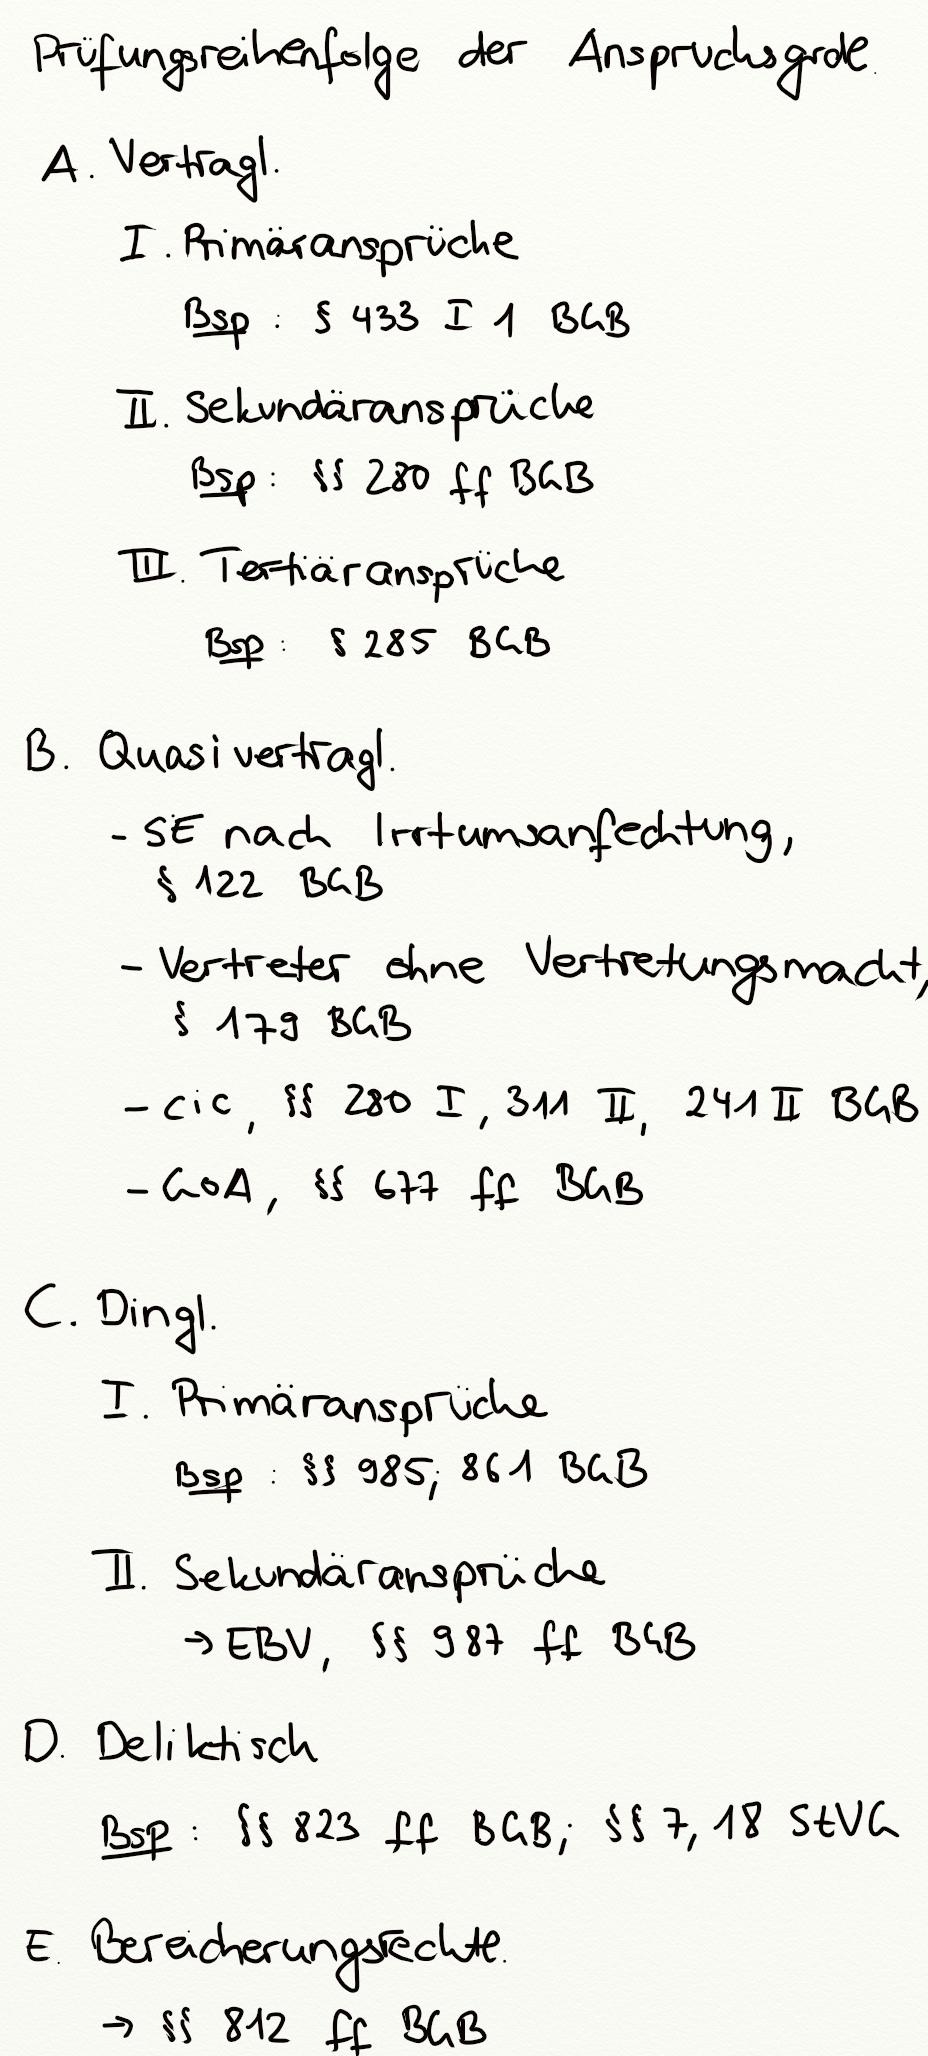 Prüfungsreihenfolge der Anspruchsgrdl.
A. Vertragl.
I. Primäransprüche
Bsp: § 433 I 1 BGB
II. Sekundäransprüche
Bsp: §§ 280 ff BGB
III. Tertiäransprüche
Bsp: § 285 BGB
B. Quasivertragl.
- SE nach Irrtumsanfechtung,
§ 122 BGB
- Vertreter ohne Vertretungsmacht,
§ 179 BGB
- cic, §§ 280 I, 311 II, 241 II BGB
- GoA, §§ 677 ff BGB
C. Dingl.
I. Primäransprüche
Bsp: §§ 985; 861 BGB
II. Sekundäransprüche
→ EBV, §§ 987 ff BGB
D. Deliktisch
Bsp: §§ 823 ff BGB; §§ 7, 18 StVG
E. Bereicherungsrechtl.
→ §§ 812 ff BGB